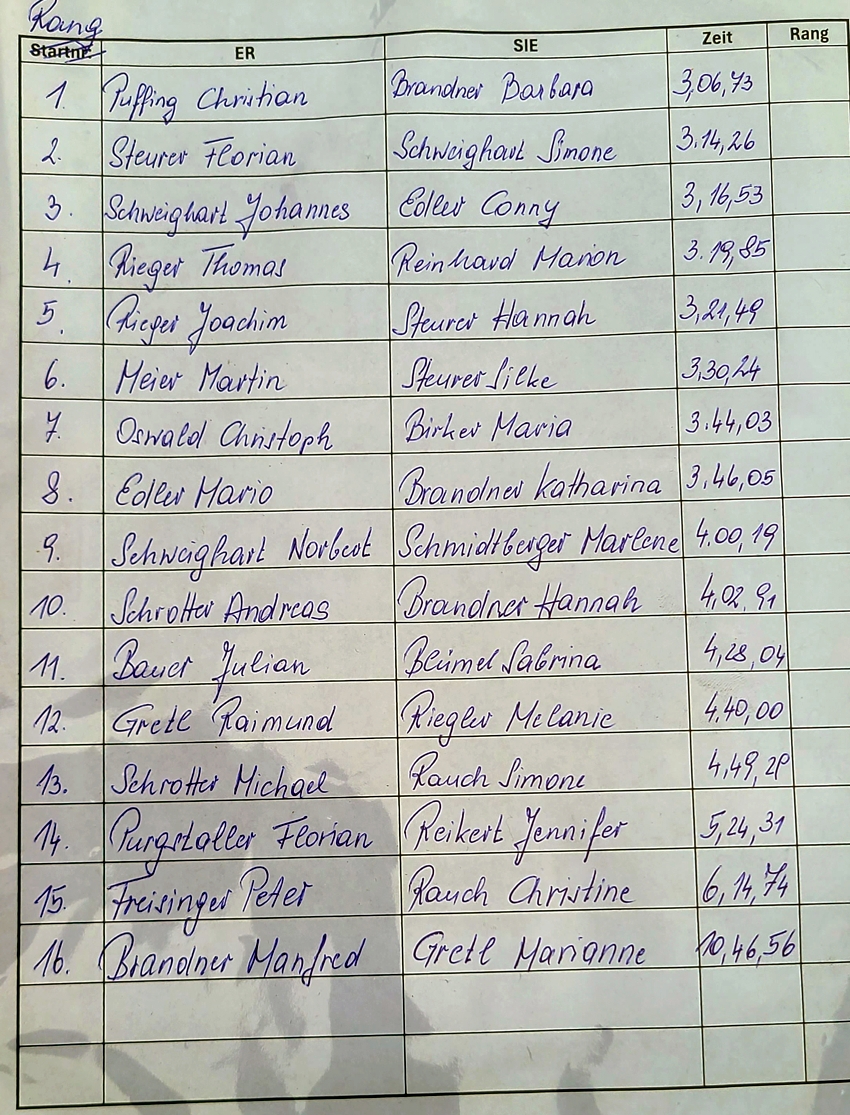 Rang
Startnr. ER SIE Zeit Rang
1. Puffing Christian Brandner Barbara 3,06,73
2. Steurer Florian Schweighart Simone 3.14,26
3. Schweighart Johannes Edler Conny 3,16,53
4. Rieger Thomas Reinhard Marion 3.19,85
5. Rieger Joachim Steurer Hannah 3,21,49
6. Meier Martin Steurer Silke 3,30,24
7. Oswald Christoph Birker Maria 3.44,03
8. Edler Mario Brandner Katharina 3,46,05
9. Schweighart Norbert Schmidtberger Marlene 4.00,19
10. Schrotter Andreas Brandner Hannah 4,02,91
11. Bauer Julian Blümel Sabrina 4,28,04
12. Gretl Raimund Riegler Melanie 4,40,00
13. Schrotter Michael Rauch Simone
14. Purgstaller Florian Reikert Jennifer 5,24,31
15. Freisinger Peter Rauch Christine 6,14,74
16. Brandner Manfred Gretl Marianne 10,46,56